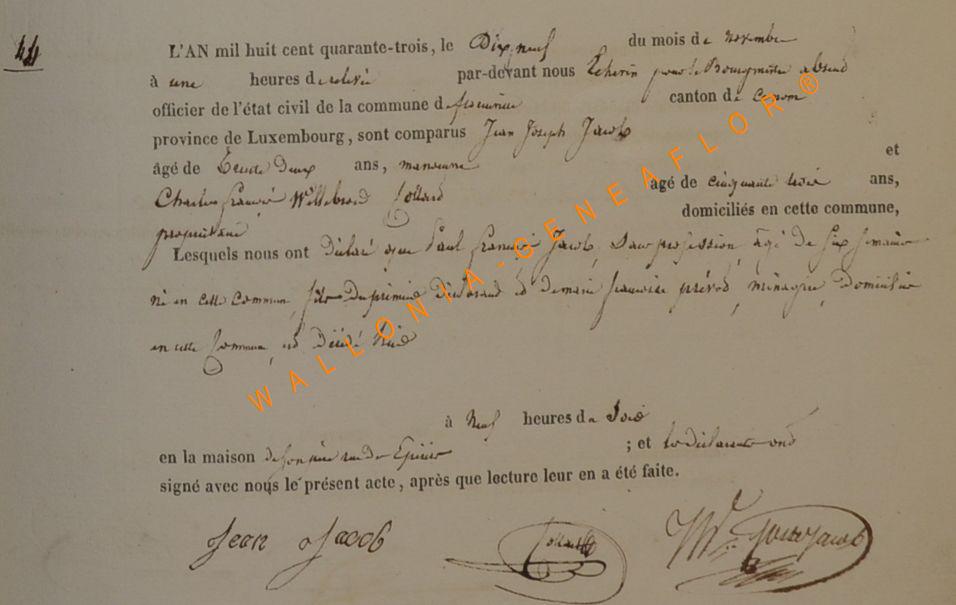 44
L'AN mil huit cent quarante-trois, le Dix neuf du mois de novembre
à une heures de relevé par-devant nous Echevin pour le Bourgmestre absend
officier de l'état civil de la commune de canton de
province de Luxembourg, sont comparus Jean Joseph Jacob
âgé de Trente Deux ans, manoeuvre et
Charles françois Willebrord Collard agé de cinquante trois ans,
propriétaire domiciliés en cette commune,
Lesquels nous ont déclaré que Paul françois Jacob, Sans profession, âgé de six semaines
né en cette commune, fils du primier déclarand et de marie françoise prévod, ménagère, Domiciliée
en cette commune, est Décédé hier
à Neuf heures du Soir
en la maison de son père rue des ; et les déclarants ont
signé avec nous le présent acte, après que lecture leur en a été faite.
Jean Jacob
Collard
WALLONIA-GENEAFLOR®